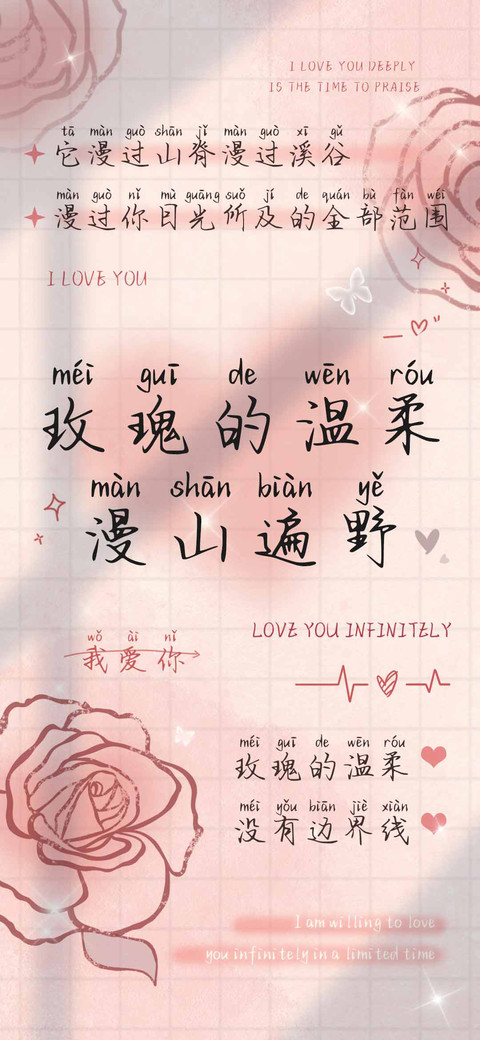 I LOVE YOU DEEPLY
IS THE TIME TO PRAISE
tā màn guò shān jǐ màn guò xī gǔ
它漫过山脊漫过溪谷
màn guò nǐ mù guāng suǒ jí de quán bù fàn wéi
漫过你目光所及的全部范围
I LOVE YOU
méi guī de wēn róu
玫瑰的温柔
màn shān biàn yě
漫山遍野
LOVE YOU INFINITELY
wǒ ài nǐ
我爱你
méi guī de wēn róu
玫瑰的温柔
méi yǒu biān jiè xiàn
没有边界线
I am willing to love
you infinitely in a limited time